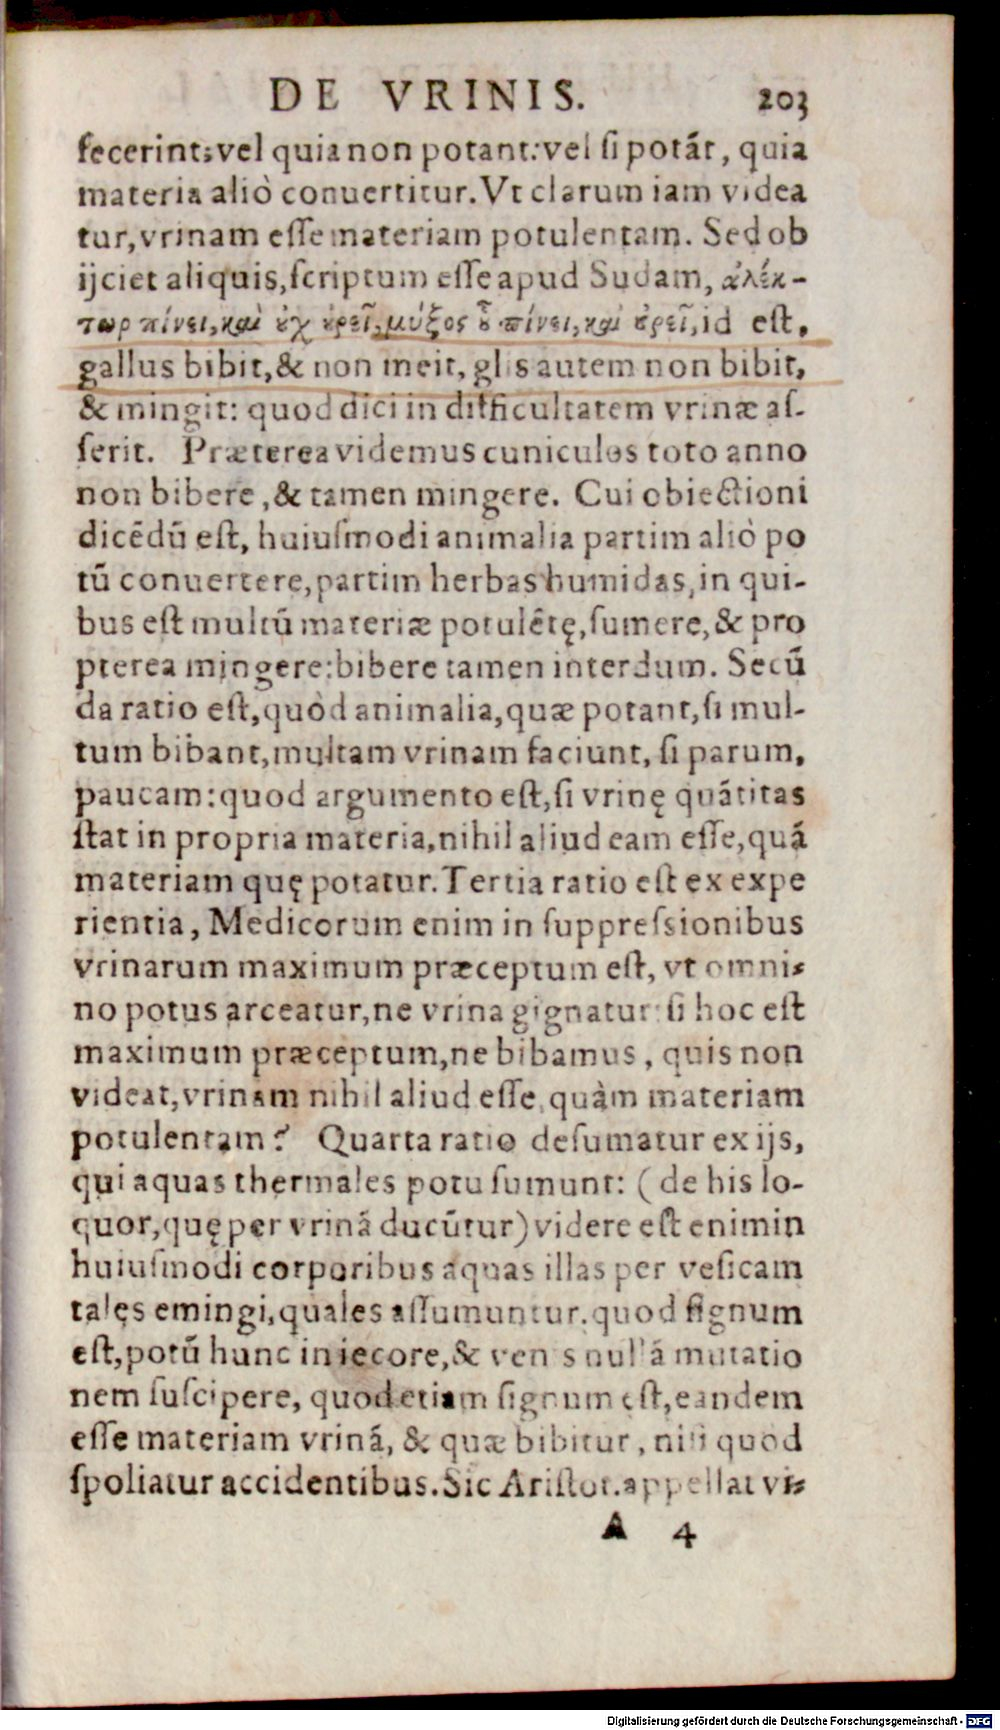 DE VRINIS. 203
fecerint; vel quia non potant: vel si potãt, quia
materia aliò conuertitur. Vt clarum iam videa
tur, vrinam esse materiam potulentam. Sed ob
ijciet aliquis, scriptum esse apud Sudam, ἀλέκ-
τωρ πίνει, καὶ ȣ̓χ ȣ̓ρεῖ, μύξος ȣ̓ πίνει, καὶ ȣ̓ρεῖ, id est,
gallus bibit, & non meit, glis autem non bibit,
& mingit: quod dici in difficultatem vrinæ as-
serit. Præterea videmus cuniculos toto anno
non bibere, & tamen mingere. Cui obiectioni
dicẽdũ est, huiusmodi animalia partim aliò po
tũ conuertere, partim herbas humidas, in qui-
bus est multũ materiæ potulẽtę, sumere, & pro
pterea mingere: bibere tamen interdum. Secũ
da ratio est, quòd animalia, quæ potant, si mul-
tum bibant, multam vrinam faciunt, si parum,
paucam: quod argumento est, si vrinę quãtitas
stat in propria materia, nihil aliud eam esse, quã
materiam quę potatur. Tertia ratio est ex expe
rientia, Medicorum enim in suppressionibus
vrinarum maximum præceptum est, vt omni-
no potus arceatur, ne vrina gignatur: si hoc est
maximum præceptum, ne bibamus, quis non
videat, vrinam nihil aliud esse, quàm materiam
potulentam? Quarta ratio desumatur ex ijs,
qui aquas thermales potu sumunt: (de his lo-
quor, quę per vrinã ducũtur) videre est enim in
huiusmodi corporibus aquas illas per vesicam
tales emingi, quales assumuntur. quod signum
est, potũ hunc in iecore, & venis nullã mutatio
nem suscipere, quod etiam signum est, eandem
esse materiam vrinã, & quæ bibitur, nisi quod
spoliatur accidentibus. Sic Aristot. appellat vi-
A 4
Digitalisierung gefördert durch die Deutsche Forschungsgemeinschaft - DFG